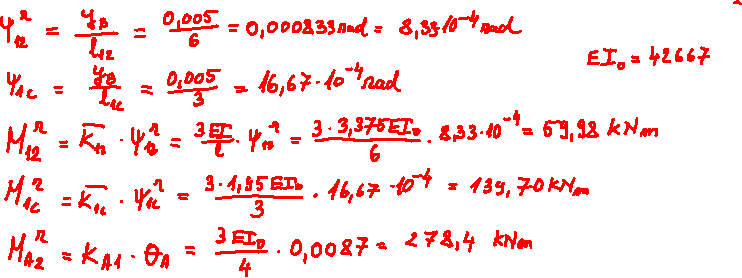 ψ₁₂ʳ = y_B / l₁₂ = 0,005 / 6 = 0,000833 rad = 8,33·10⁻⁴ rad
EI₀ = 42667
ψ₁c = y_B / l₁c = 0,005 / 3 = 16,67·10⁻⁴ rad
M₁₂ʳ = K̅₁₂ · ψ₁₂ʳ = 3EI / l · ψ₁₂ʳ = 3·3,375EI₀ / 6 · 8,33·10⁻⁴ = 59,98 kNm
M₁cʳ = K̅₁c · ψ₁cʳ = 3·1,95EI₀ / 3 · 16,67·10⁻⁴ = 139,70 kNm
M_A2ʳ = K_A1 · θ_A = 3EI₀ / 4 · 0,0087 = 278,4 kNm